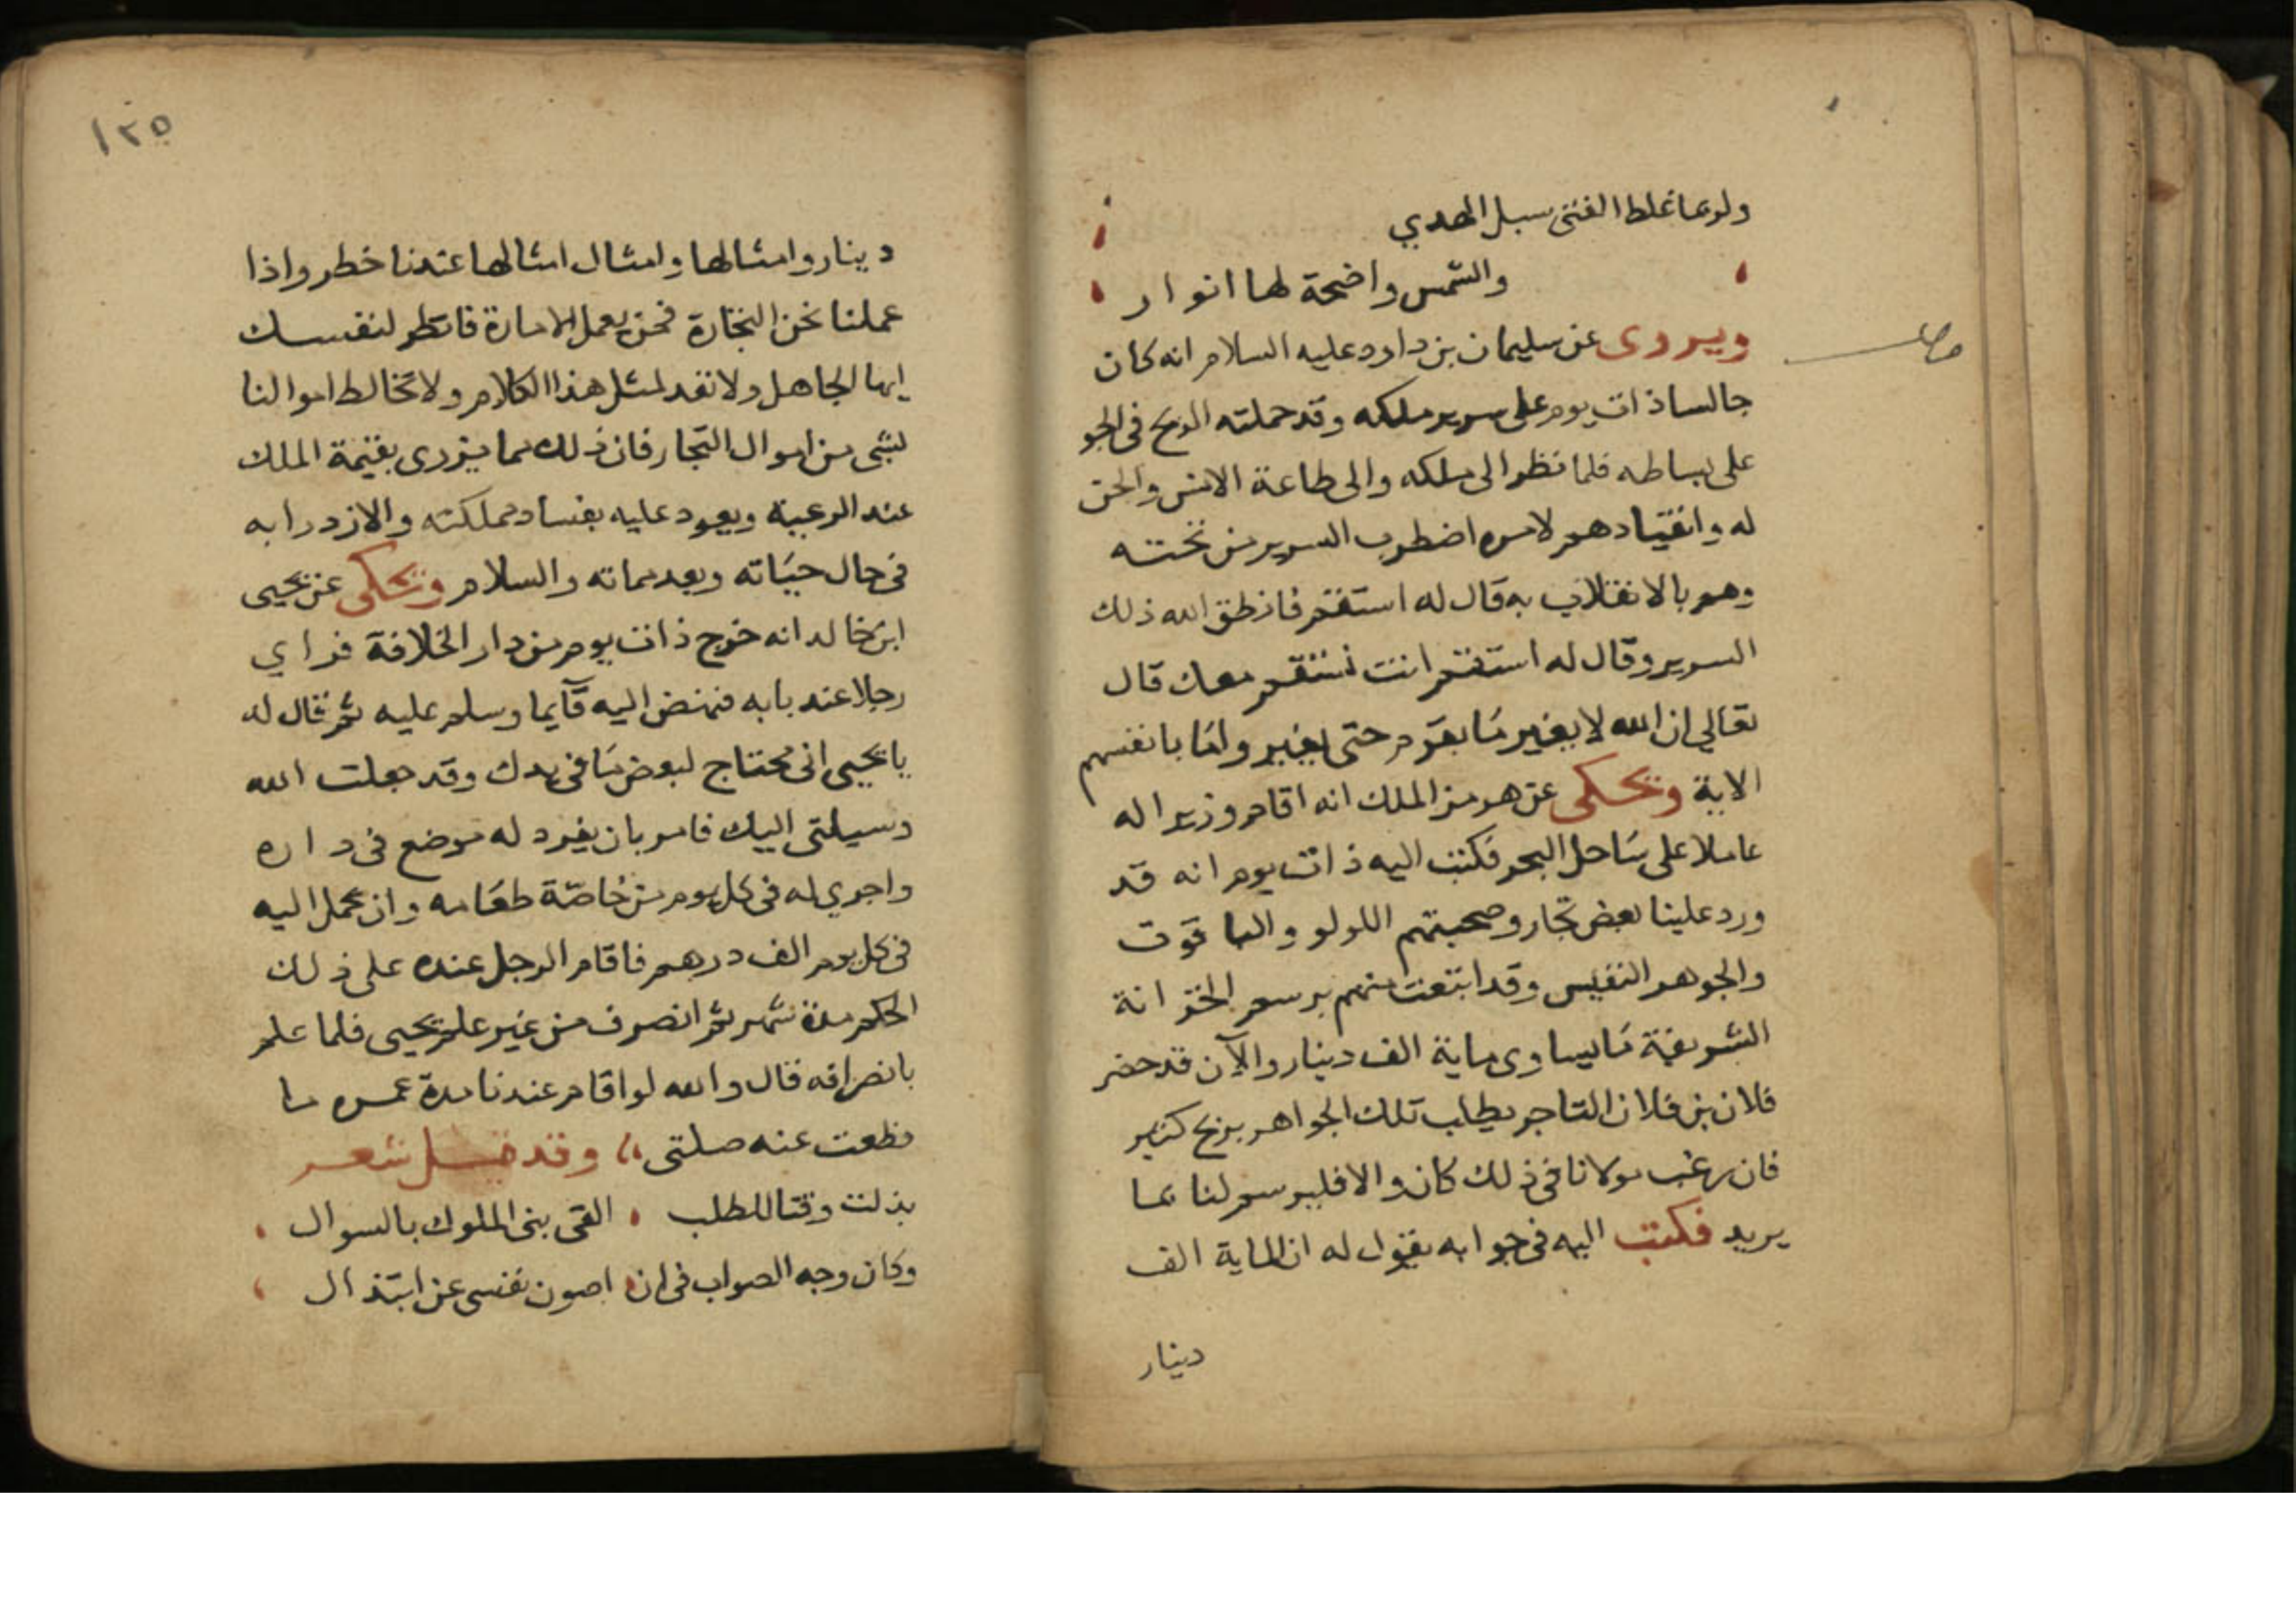 ولربما غلط الفتى سبل الهدي
والشمس واضحة لها انوار
ويروى عن سليمان بن داود عليه السلام انه كان
جالسا ذات يوم على سرير ملكه وقد حملته الريح فى الجو
على بساطه فلما نظر الى ملكه والى طاعة الانس والجن
له وانقيادهم لامره اضطرب السرير من تحته
وهم بالانقلاب به قال له استقم فانطق الله ذلك
السرير وقال له استقم انت نستقم معك قال
تعالي ان الله لا يغير مَا بقوم حتى يغيروا مَا بانفسهم
الاية ويحكى عن هرمز الملك انه اقام وزيرا له
عاملا على سَاحل البحر فكتب اليه ذات يوم انه قد
ورد علينا بعض تجار وصحبتهم اللولو والياقوت
والجوهر النفيس وقد ابتعت منهم برسم الخزانة
الشريفة مَا يساوى ماية الف دينار والآن قد حضر
فلان بن فلان التاجر يطلب تلك الجواهر بربح كثير
فان رغب مولانا فى ذلك كان والا فليرسم لنا بما
يريد فكتب اليه فى جوابه يقول له ان الماية الف
دينار
١٢٥
دينار وامثالها وامثال امثالها عندنا خطر واذا
عملنا نحن التجارة فمن يعمل الامارة فانظر لنفسك
ايها الجاهل ولا تعد لمثل هذا الكلام ولا تخالط اموالنا
لشى من اموال التجار فان ذلك مما يزرى بقيمة الملك
عند الرعية ويعود عليه بفساد مملكته والازدرا به
فى حال حيَاته وبعد مماته والسلام ويحكى عن يحيى
ابن خالد انه خرج ذات يوم من دار الخلافة فراي
رجلا عند بابه فنهض اليه قآيما وسلم عليه ثم قال له
يا يحيى انى محتاج لبعض مَا فى يدك وقد جعلت الله
وسيلتى اليك فامر بان يفرد له موضع فى داره
واجري له فى كل يوم من خُاصّة طعَامه وان يحمل اليه
فى كل يوم الف درهم فاقام الرجل عنده على ذلك
الحكم مدة شهر ثم انصرف من غير علم يحيى فلما علم
بانصرافه قال والله لو اقام عندنا مدة عمره ما
قطعت عنه صلتى وقد قيل شعر
بذلت وقتا للطلب القى بنى الملوك بالسوال
وكان وجه الصواب فى ان اصون نفسى عن ابتذال